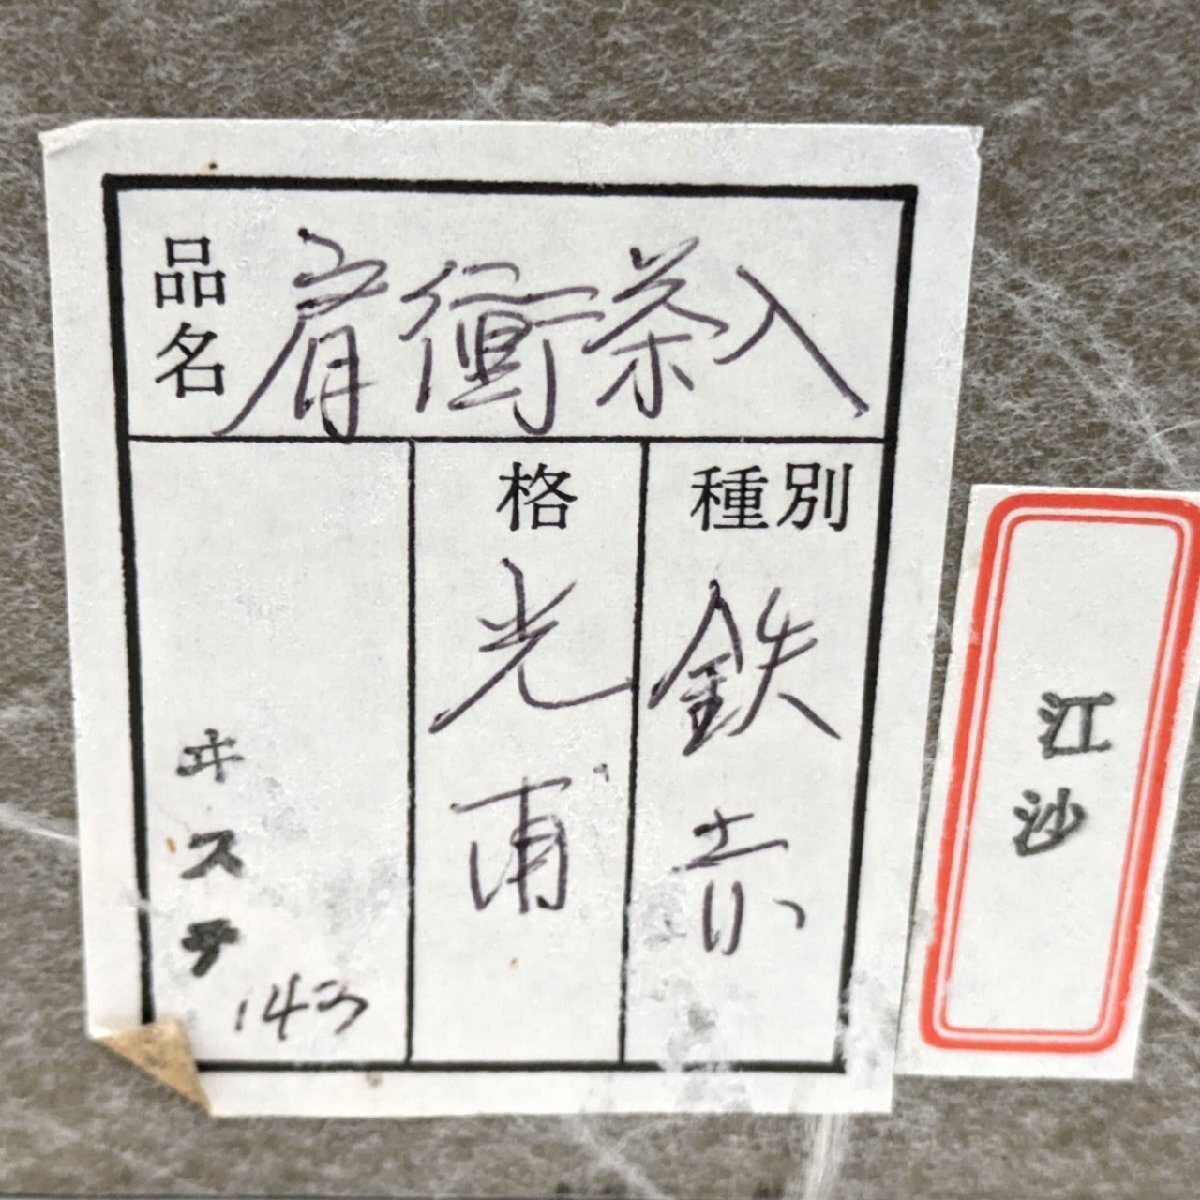 品名 肩衝茶入
種別 鉄赤
格 光甫
ヰステ 143
江沙